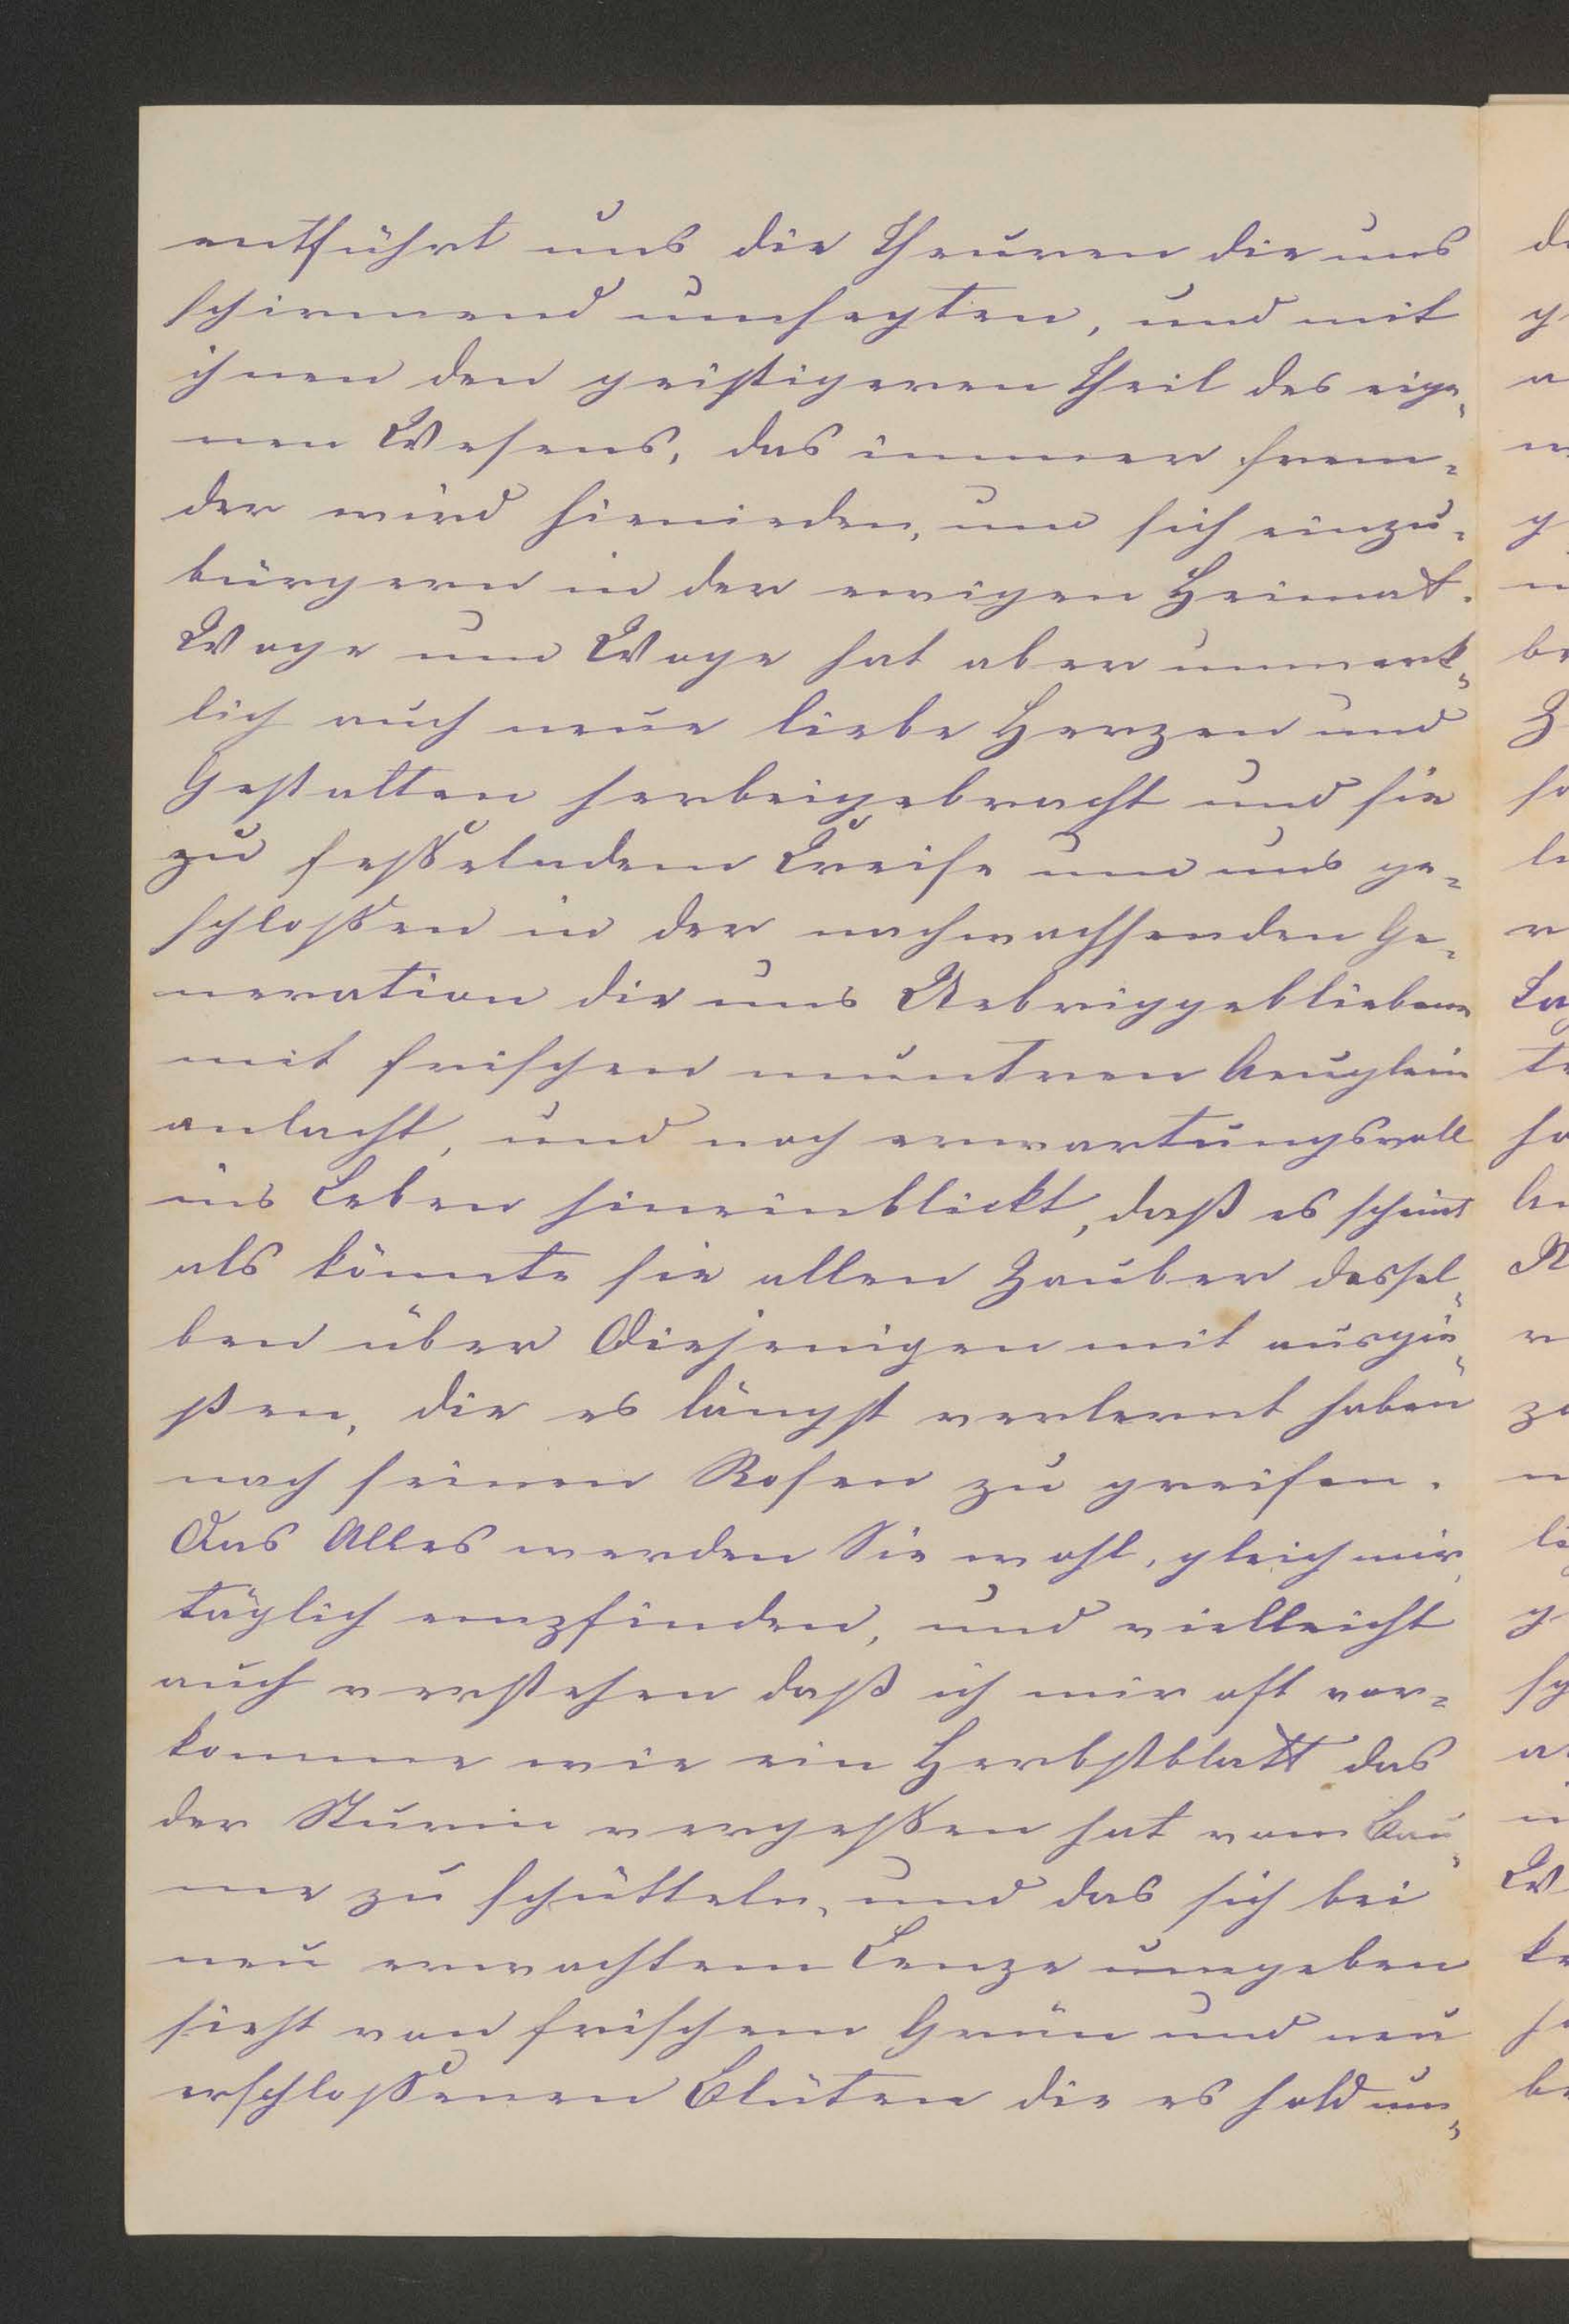 entführt uns die Theuren die uns
schirmend umhegten, und mit
ihnen den geistigeren Theil des eige¬
nen Wesens, das immer frem¬
der wird hienieden, um sich einzu¬
bürgern in der ewigen Heimat.
Woge um Woge hat aber unmerk¬
lich auch neue liebe Herzen und
Gestalten herbeigebracht und sie
zu fesselndem Kreise um uns ge¬
schlossen in der nachwachsenden Ge¬
neration die uns Uebriggebliebene
mit frischen muntren Aeuglein
anlacht, und noch erwartungsvoll
ins Leben hineinblickt, daß es scheint
als könnte sie allen Zauber dessel¬
ben über Diejenigen mit ausgie¬
ßen, die es längst verlernt haben
nach seinen Rosen zu greifen.
Das Alles werden Sie wohl, gleich mir,
täglich empfinden, und vielleicht
auch verstehen daß ich mir oft vor¬
komme wie ein Herbstblatt das
der Sturm vergessen hat vom Bau¬
me zu schütteln, und das sich bei
neu erwachtem Lenze umgeben
sieht von frischem Grün und neu
erschlossenen Blüten die es hold um¬